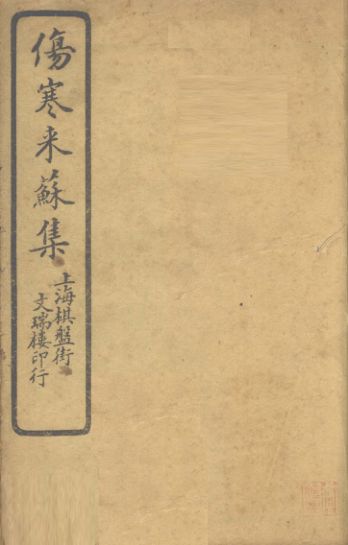 傷寒来蘇集
上海棋盤街
文瑞楼印行